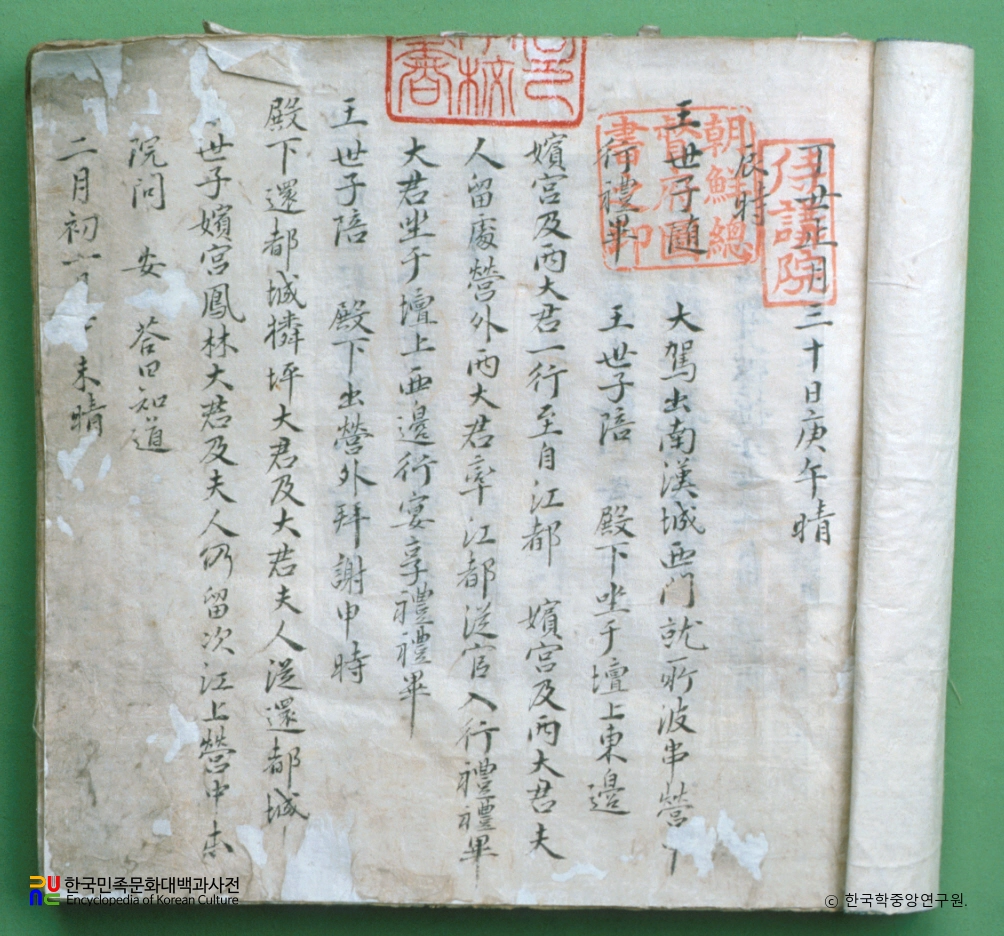 丁丑正月三十日庚午晴
辰時
王世子隨 大駕出南漢城西門就所波串營下
行禮畢 王世子陪 殿下坐于壇上東邊
嬪宮及兩大君一行至自江都 嬪宮及兩大君夫
人留處營外兩大君率江都從官入行禮禮畢
大君坐于壇上西邊行宴享禮禮畢
王世子陪 殿下出營外拜謝申時
殿下還都城獜坪大君及大君夫人從還都城
世子嬪宮鳳林大君及夫人仍留次江上營中本
院問 安 答曰知道
二月初一日 未晴
侍講院
朝鮮總
督府
書之印
한국민족문화대백과사전
Encyclopedia of Korean Culture
© 한국학중앙연구원.